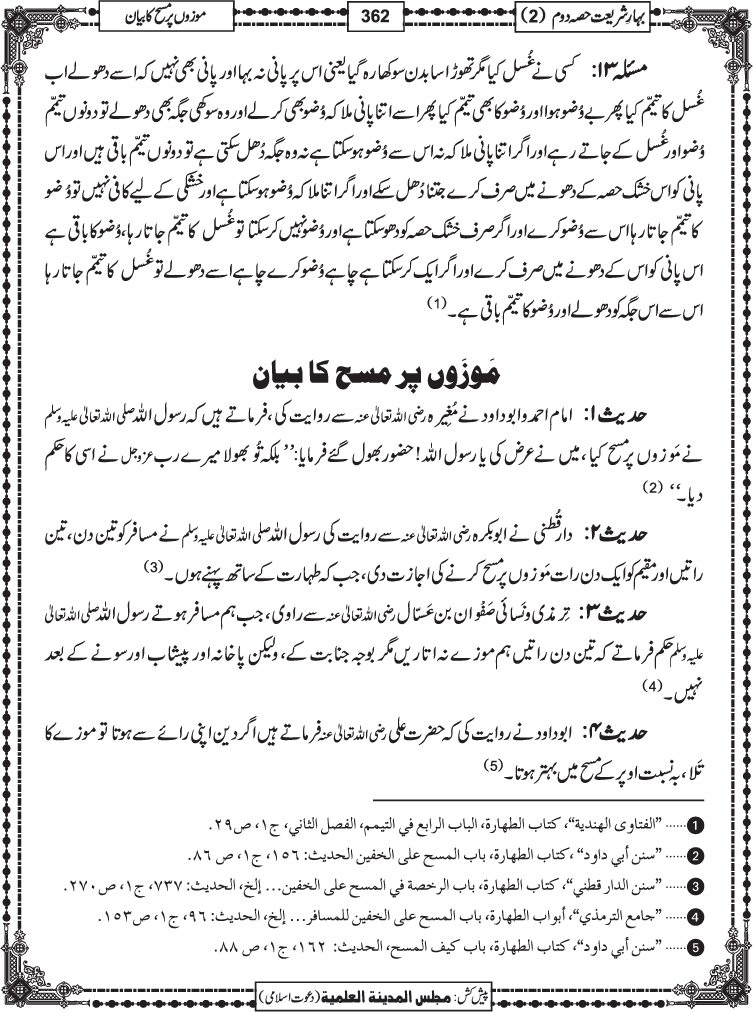 بہارشریعت حصہ دوم (2)
362
موزوں پر مسح کا بیان
مسئلہ ۱۳: کسی نے غُسل کیا مگر تھوڑا سا بدن سوکھا رہ گیا یعنی اس پر پانی نہ بہا اور پانی بھی نہیں کہ اسے دھو لے اب
غُسل کا تیمّم کیا پھر بے وُضو ہوا اور وُضو کا بھی تیمّم کیا پھر اسے اتنا پانی ملا کہ وُضو بھی کر لے اور وہ سوکھی جگہ بھی دھولے تو دونوں تیمّم
وُضو اور غُسل کے جاتے رہے اور اگر اتنا پانی ملا کہ نہ اس سے وُضو ہو سکتا ہے نہ وہ جگہ دُھل سکتی ہے تو دونوں تیمّم باقی ہیں اور اس
پانی کو اس خشک حصہ کے دھونے میں صرف کرے جتنا دُھل سکے اور اگر اتنا ملا کہ وُضو ہو سکتا ہے اور خشکی کے لیے کافی نہیں تو وُضو
کا تیمّم جاتا رہا اس سے وُضو کرے اور اگر صرف خشک حصہ کو دھو سکتا ہے اور وُضو نہیں کر سکتا تو غُسل کا تیمّم جاتا رہا، وُضو کا باقی ہے
اس پانی کو اس کے دھونے میں صرف کرے اور اگر ایک کر سکتا ہے چاہے وُضو کرے چاہے اسے دھولے تو غُسل کا تیمّم جاتا رہا
اس سے اس جگہ کو دھولے اور وُضو کا تیمّم باقی ہے۔ (1)
مَوزَوں پر مسح کا بیان
حدیث ۱: امام احمد و ابو داود نے مُغِیرہ رضی اللہ تعالیٰ عنہ سے روایت کی، فرماتے ہیں کہ رسول اللہ صلی اللہ تعالیٰ علیہ وسلم
نے مَوزوں پر مسح کیا، میں نے عرض کی یا رسول اللہ! حضور بھول گئے فرمایا: ’’بلکہ تُو بھولا میرے رب عزوجل نے اسی کا حکم
دیا۔‘‘ (2)
حدیث ۲: دارقُطنی نے ابوبکرہ رضی اللہ تعالیٰ عنہ سے روایت کی رسول اللہ صلی اللہ تعالیٰ علیہ وسلم نے مسافر کو تین دن، تین
راتیں اور مقیم کو ایک دن رات مَوزوں پر مسح کرنے کی اجازت دی، جب کہ طہارت کے ساتھ پہنے ہوں۔ (3)
حدیث ۳: تِرمذی و نَسائی صَفْوان بن عَسّال رضی اللہ تعالیٰ عنہ سے راوی، جب ہم مسافر ہوتے رسول اللہ صلی اللہ تعالیٰ
علیہ وسلم حکم فرماتے کہ تین دن راتیں ہم موزے نہ اتاریں مگر بوجہ جنابت کے، ولیکن پاخانہ اور پیشاب اور سونے کے بعد
نہیں۔ (4)
حدیث ۴: ابو داود نے روایت کی کہ حضرت علی رضی اللہ تعالیٰ عنہ فرماتے ہیں اگر دین اپنی رائے سے ہوتا تو موزے کا
تَلا، بہ نسبت اوپر کے مسح میں بہتر ہوتا۔ (5)
1 …… ”الفتاوی الهندیة“، کتاب الطهارة، الباب الرابع في التیمم، الفصل الثاني، ج۱، ص۲۹.
2 …… ”سنن أبي داود“، کتاب الطهارة، باب المسح علی الخفین الحدیث: ۱۵٦، ج۱، ص ۸٦.
3 …… ”سنن الدار قطني“، کتاب الطهارة، باب الرخصة في المسح علی الخفین... إلخ، الحدیث: ۷۳۷، ج۱، ص۲۷۰.
4 …… ”جامع الترمذي“، أبواب الطهارة، باب المسح علی الخفین للمسافر... إلخ، الحدیث: ۹٦، ج۱، ص۱۵۳.
5 …… ”سنن أبي داود“، کتاب الطهارة، باب کیف المسح، الحدیث: ۱٦۲، ج۱، ص ۸۸.
پیش کش: مجلس المدینة العلمیة (دعوت اسلامی)